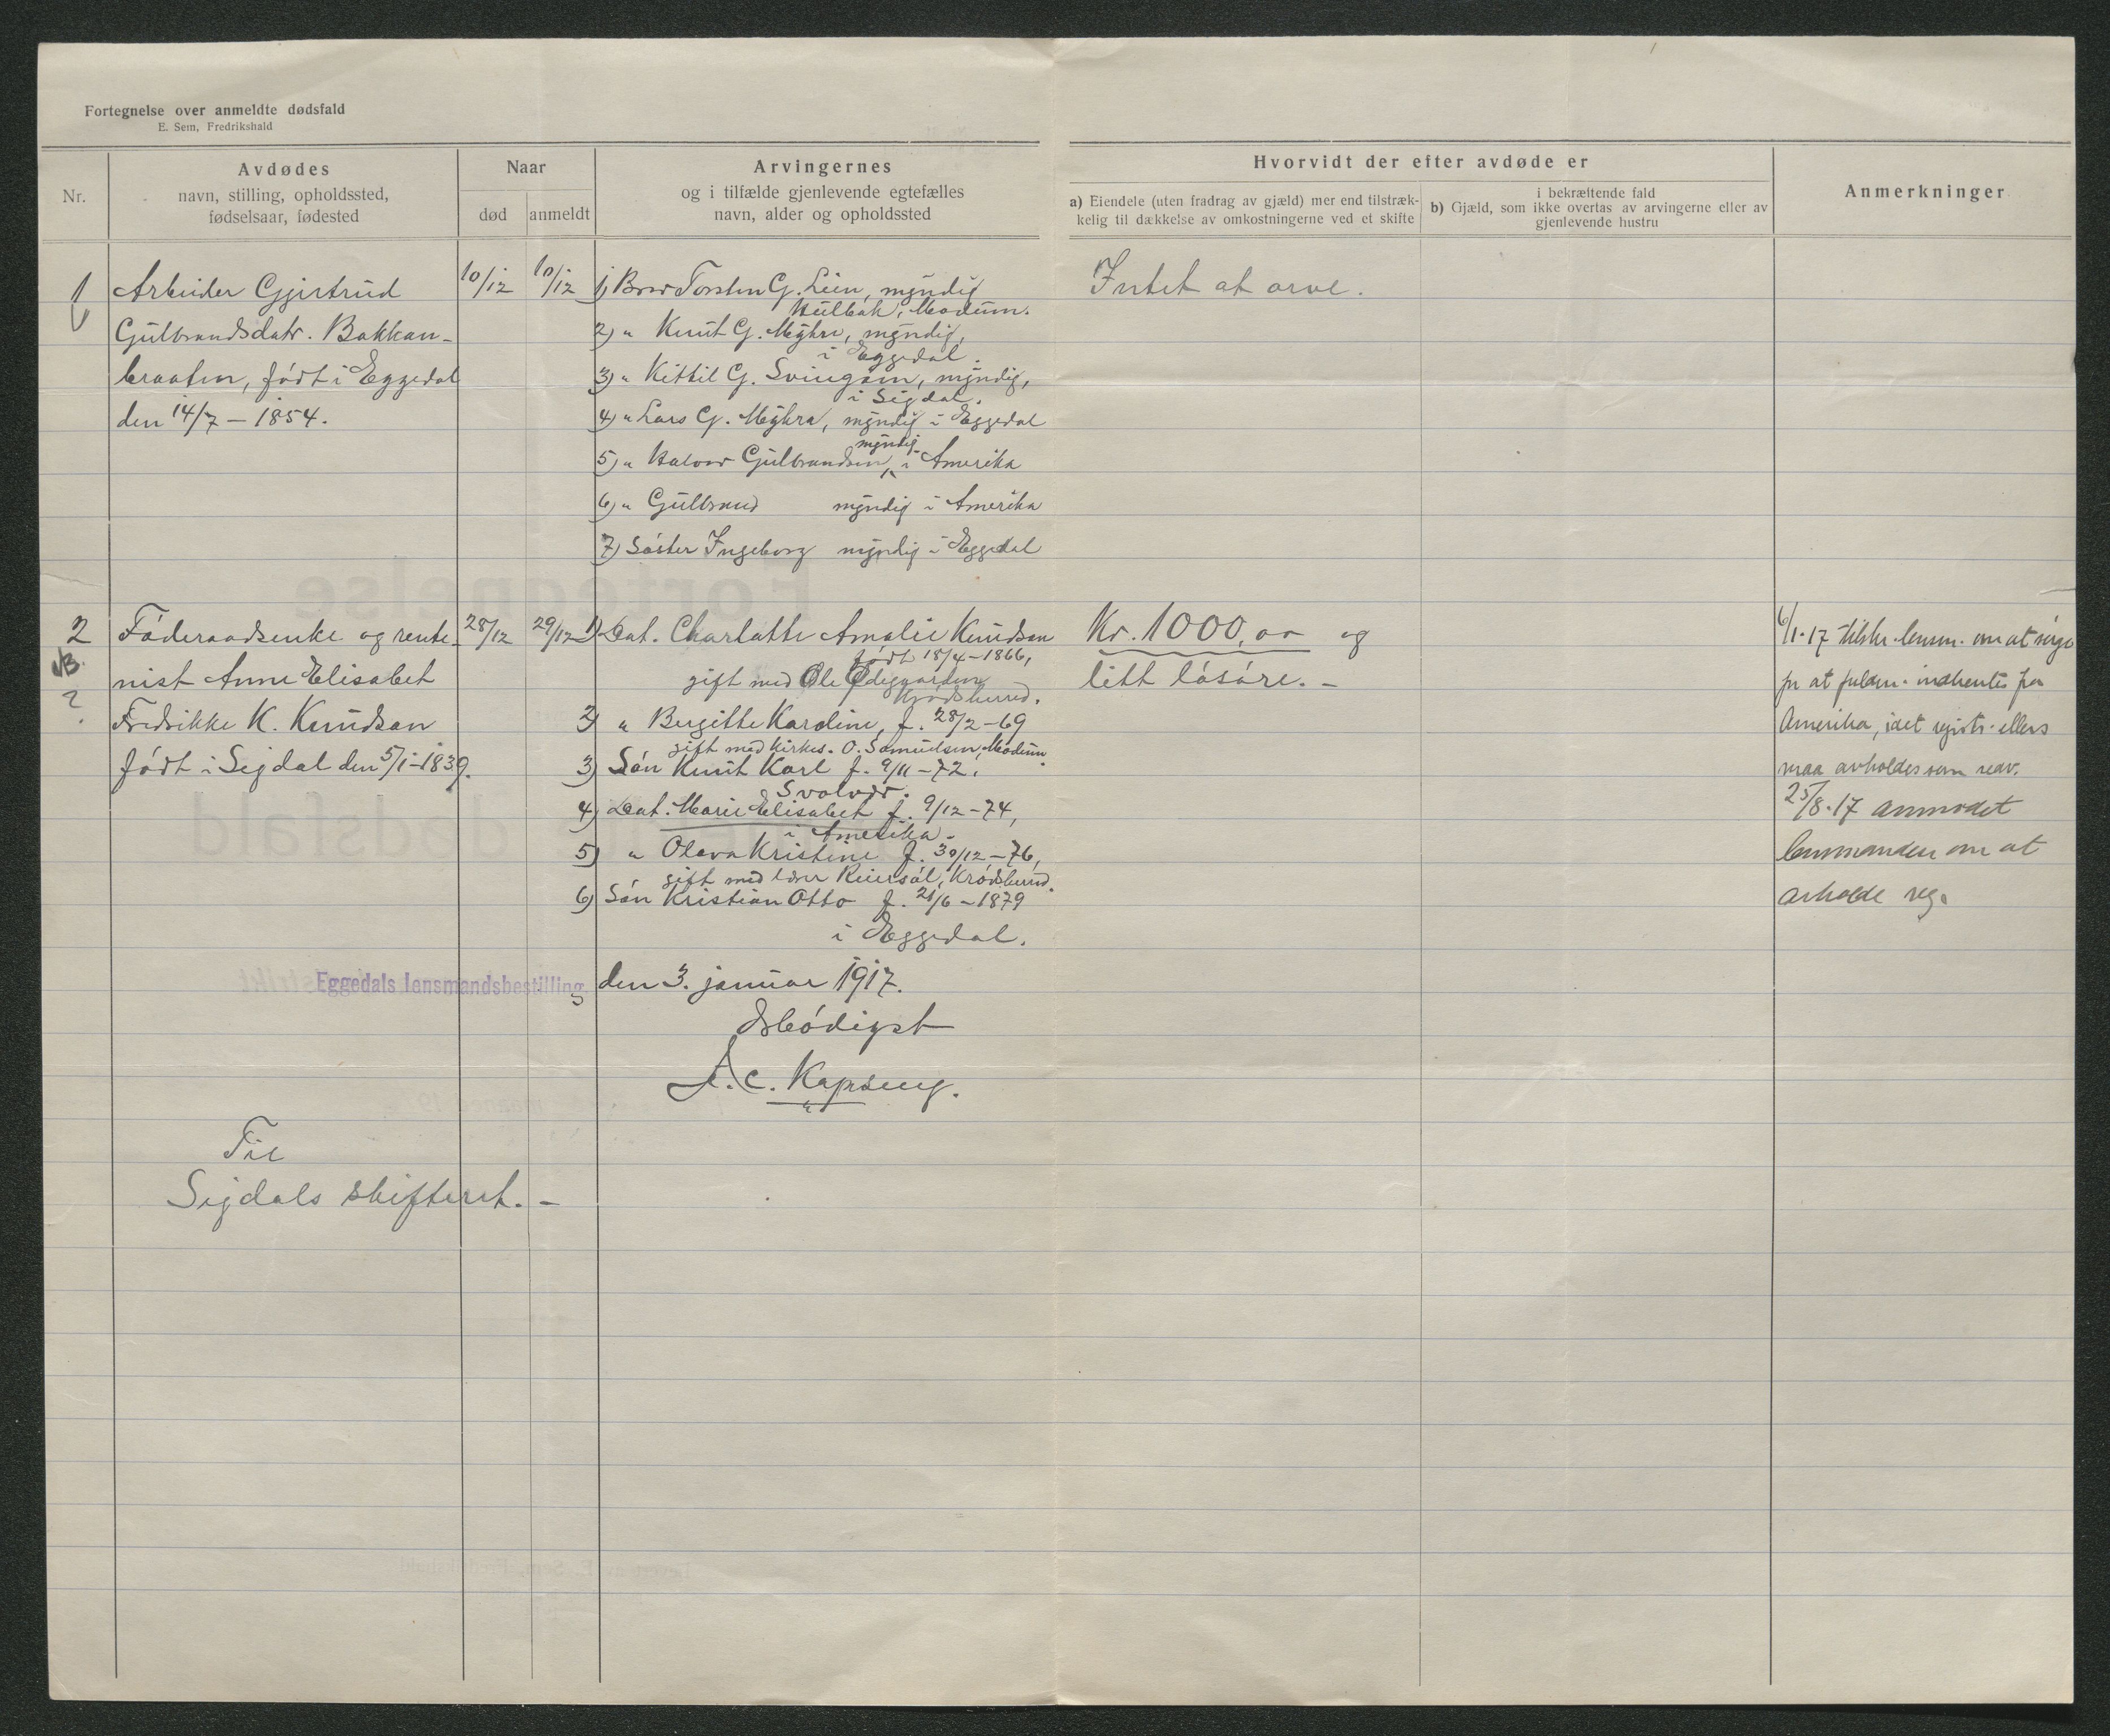 Fortegnelse over anmeldte dødsfald
E. Sem, Fredrikshald
Nr.
Avdødes
navn, stilling, opholdssted,
fødselsaar, fødested
Naar
død
anmeldt
Arvingernes
og i tilfælde gjenlevende egtefælles
navn, alder og opholdssted
Hvorvidt der efter avdøde er
a) Eiendele (uten fradrag av gjæld) mer end tilstræk-
kelig til dækkelse av omkostningerne ved et skifte
i bekræftende fald
b) Gjæld, som ikke overtas av arvingerne eller av
gjenlevende hustru
Anmerkninger
1
Arbeider Gjertrud
Gulbrandsdatr. Bakkan-
braaten, født i Eggedal
den 14/7 – 1854.
10/12
10/12
1) Bror Torsten G. Lien, myndig
Hulbak, Modum.
2) " Knut G. Myhre, myndig,
i Eggedal.
3) " Kittil G. Svingom, myndig,
i Sigdal.
4) " Lars G. Myhra, myndig i Eggedal
myndig
5) " Halvor Gulbrandsen, i Amerika
6) " Gulbrand myndig i Amerika
7) Søster Ingeborg myndig i Eggedal
Intet at arve.
2
?
Føderaadsenke og rente-
nist Anne Elisabet
Fredrikke K. Knudson
født i Sigdal den 5/1-1839.
28/12
29/12
1) Dat. Charlotte Amalie Knudson
født 18/4-1866,
gift med Ole Ødegaarden
Krødsherred.
2) " Bergitte Karoline, f. 28/2-69
gift med kirkes. O. Samuelsen, Modum.
3) Søn Knut Karl f. 9/11-72.
Svolvær.
4) Dat. Marie Elisabet f. 9/12-74,
i Amerika.
5) " Olava Kristine f. 30/12-76,
gift med lærer Reiersøl, Krødsherred.
6) Søn Kristian Otto f. 21/6-1879
i Eggedal.
Kr. 1000,00 og
litt løsøre. –
6/1-17 tilskr. lensm. om at sørge
for at fuldm. indhentes fra
Amerika, idet registr. ellers
maa avholdes som
25/8-17 anmodet
lensmanden om at
avholde reg.
Eggedals lensmandsbestilling
den 3. januar 1917.
Ærbødigst
A. C. Kopseng.
Til
Sigdals skifteret. –